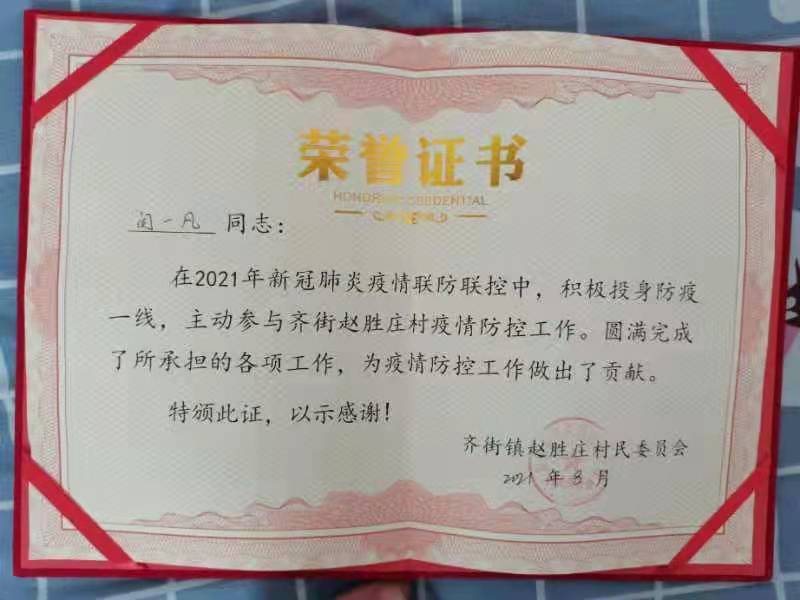 荣誉证书
HONORARY CREDENTIAL
闫一凡 同志：
在2021年新冠肺炎疫情联防联控中，积极投身防疫
一线，主动参与齐街赵胜庄村疫情防控工作。圆满完成
了所承担的各项工作，为疫情防控工作做出了贡献。
特颁此证，以示感谢！
齐街镇赵胜庄村民委员会
2021 年 8 月